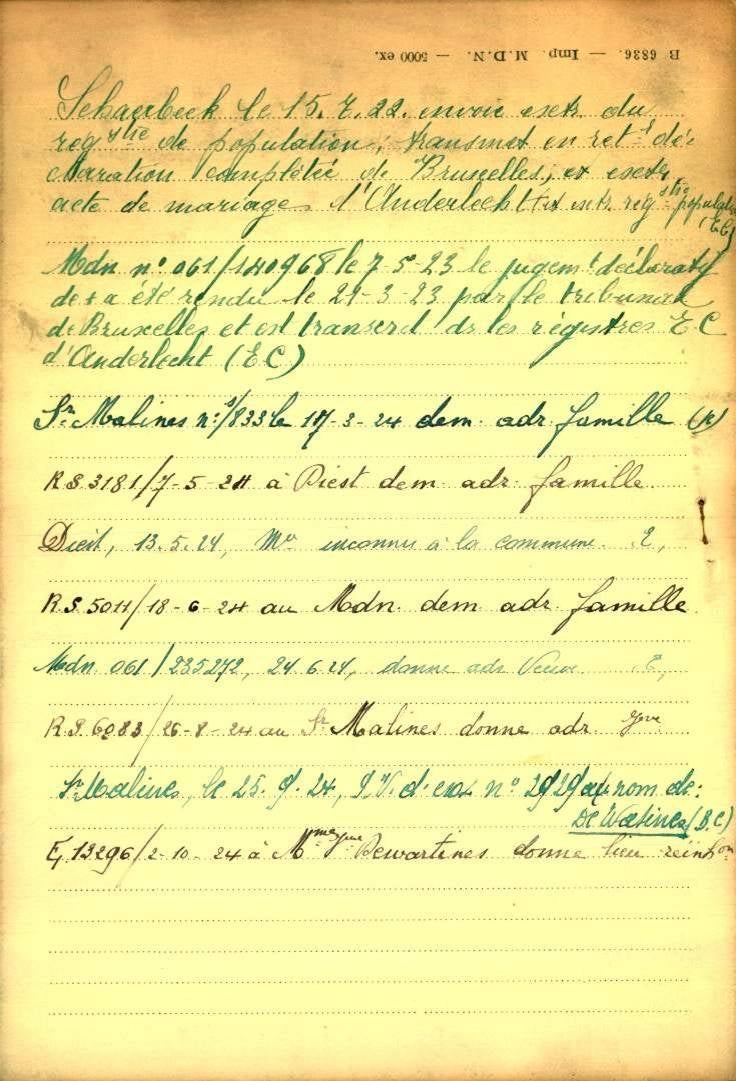 B 6836. — Imp. M.D.N. — 5000 ex.
Schaerbeek le 15.7.22. envoie extr. du
reg stre de population; transmet en ret. s dé-
claration complétée de Bruxelles, et extr
acte de mariage d'Anderlecht et extr. reg stre populat
(EC)
Mdn n° 061/140968 le 7-5-23 le jugemt déclaratif
de + a été rendu le 21-3-23 par le tribunal
de Bruxelles et est transcrit ds les régistres E C
d'Anderlecht (E C)
Sr Malines n: s/833 le 17-3-24 dem. adr. famille (R)
R.S 3181/7-5-24 à Diest dem. adr. famille.
Diest, 13.5.24, Mr inconnu à la commune. E,
R.S. 5011/18-6-24 au Mdn. dem. adr. famille
Mdn 061/235272, 24.6.24, donne adr Veuve E,
R.S. 6083/26-8-24 au Sr Malines donne adr.
Sr Malines, le 25.9.24, P.V. d'ex n° 2929 au nom de:
De Watines (B.C)
E, 13296/2-10-24 à Mme Dewartines donne lieu reinhon